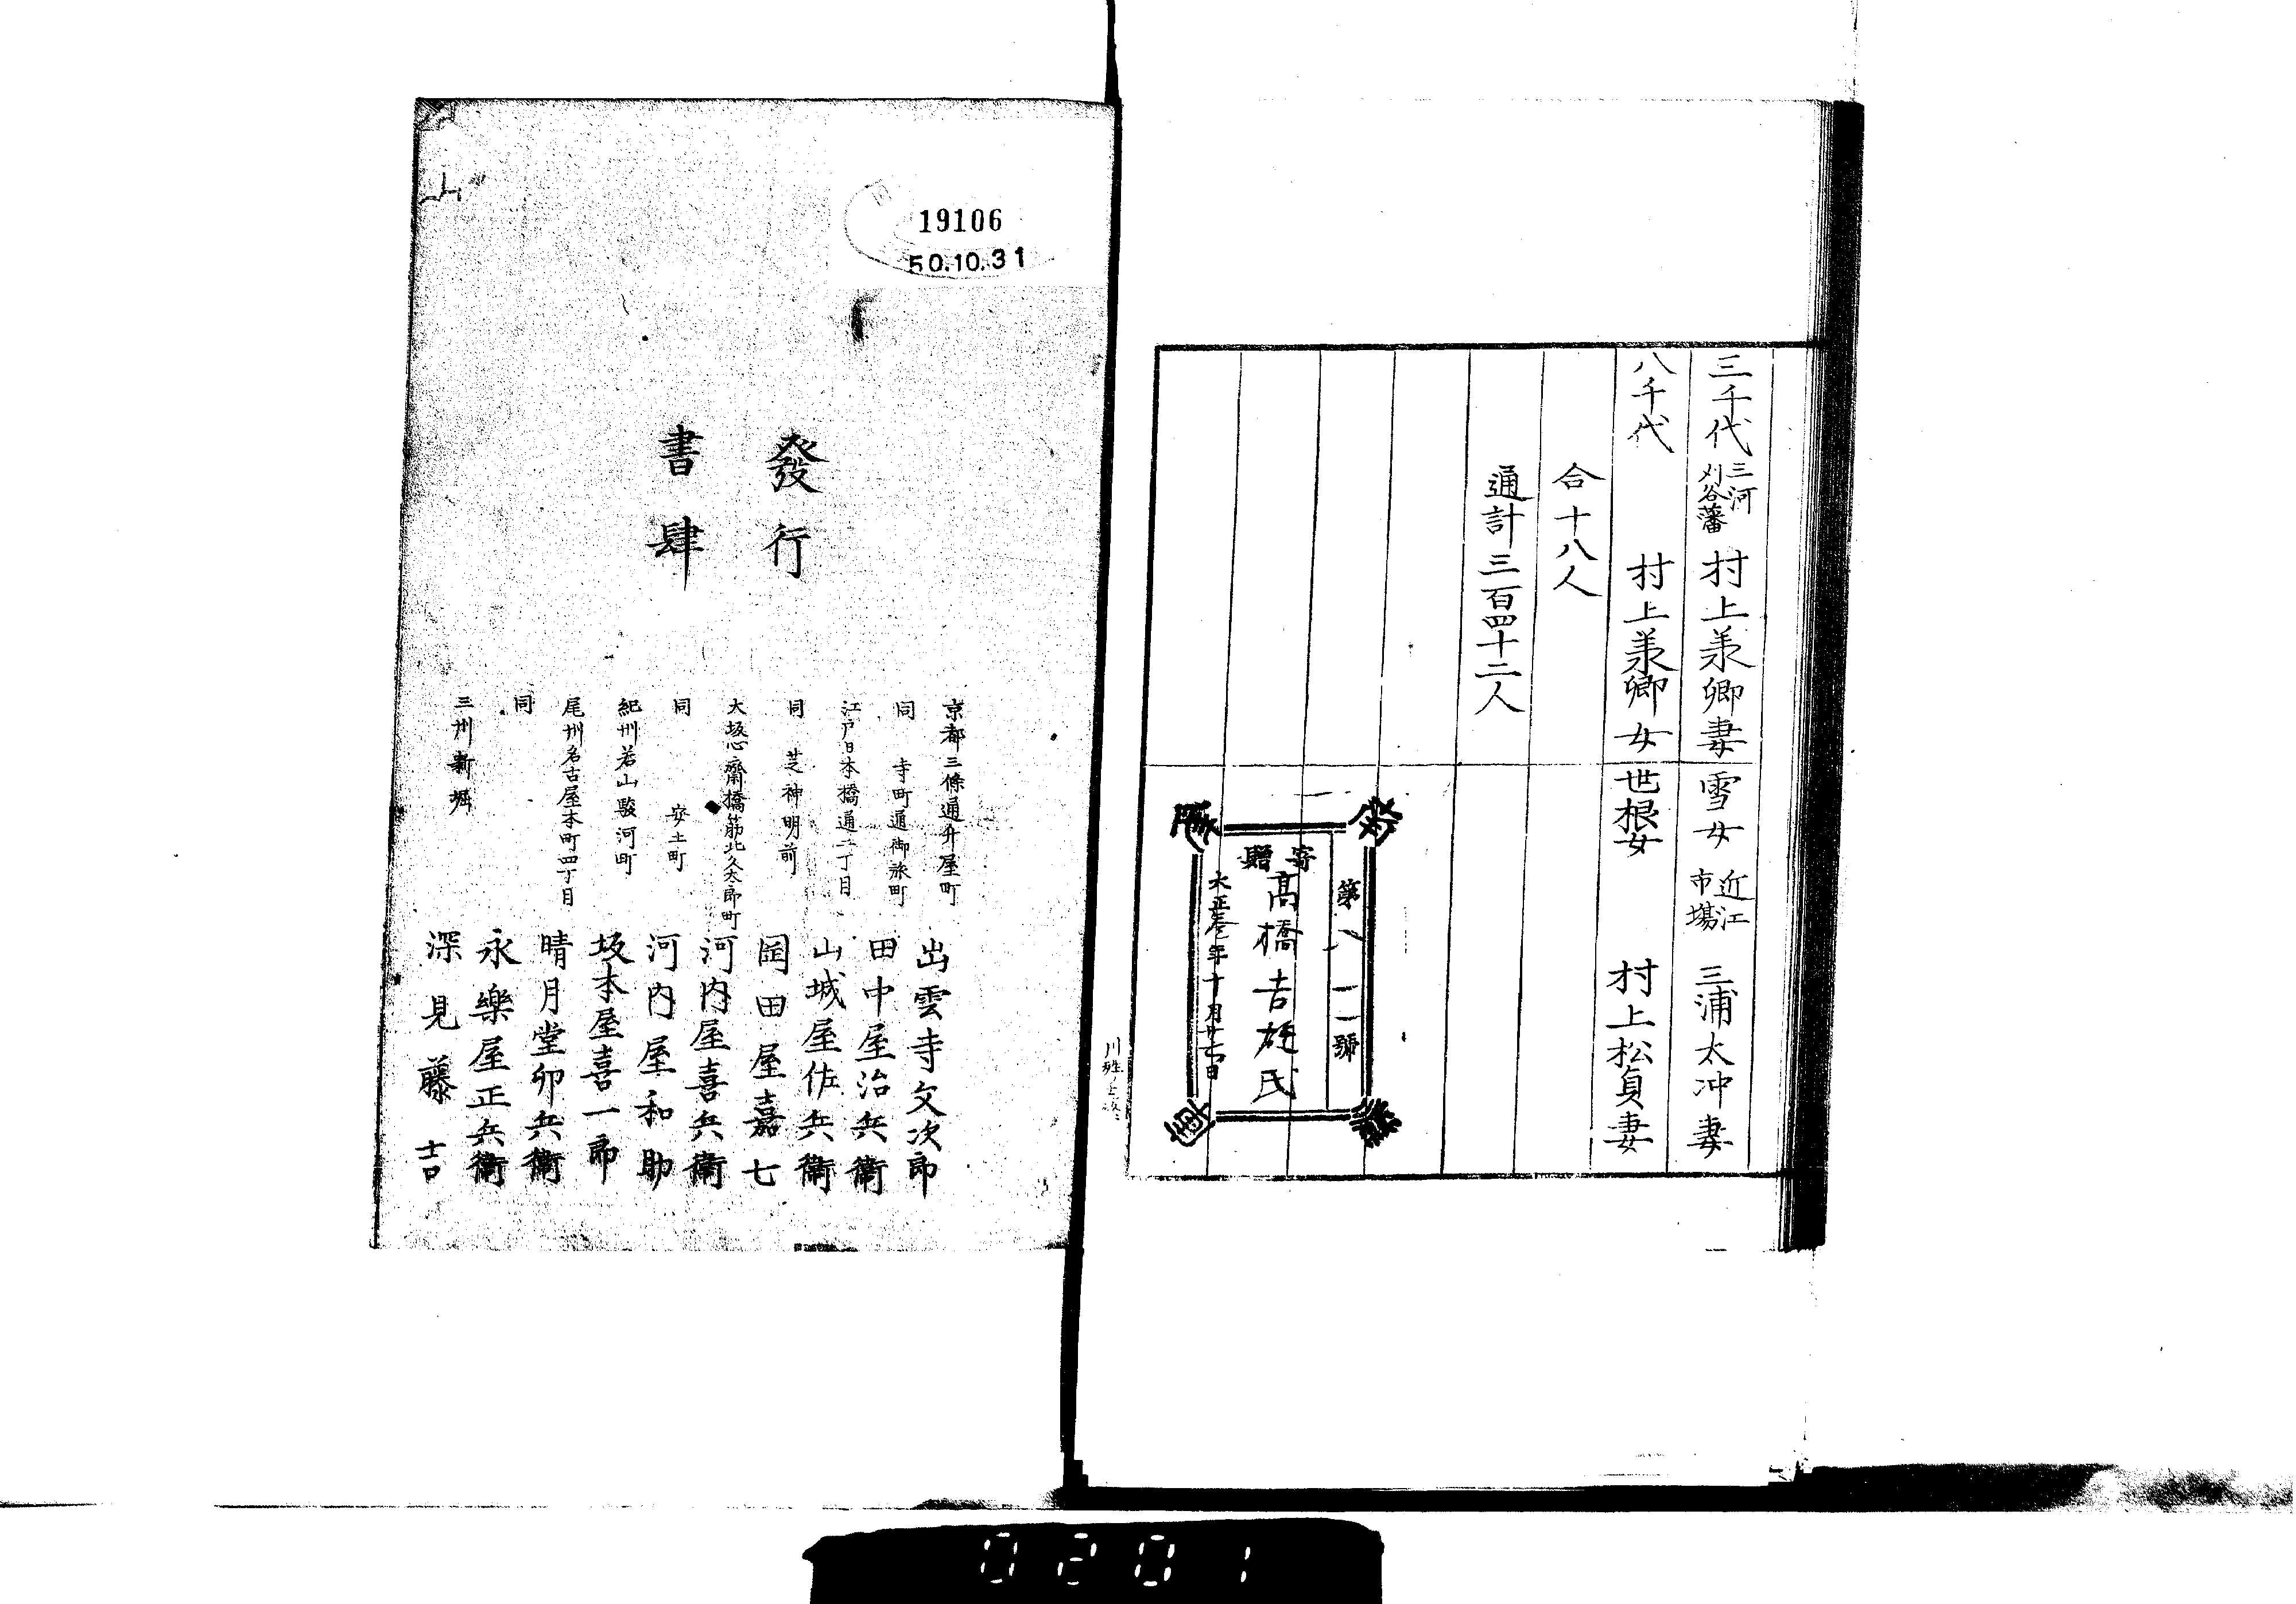 三千代 三河刈谷藩 村上義卿妻 雪女 近江市場 三浦太冲妻
八千代 村上義卿女 世根女 村上松貞妻
合十八人
通計三百四十二人
第八一一號
寄贈
髙橋吉雄氏
19106
50.10.31
發行
書肆
京都三條通升屋町 出雲寺文次郎
同 寺町通御旅町 田中屋治兵衞
江戸日本橋通二丁目 山城屋佐兵衞
同 芝神明前 岡田屋嘉七
大坂心齋橋筋北久太郎町 河内屋喜兵衞
同 安土町 河内屋和助
紀州若山駿河町 坂本屋喜一郎
尾州名古屋本町四丁目 晴月堂卯兵衞
同 永樂屋正兵衞
三州新堀 深見藤吉
0201